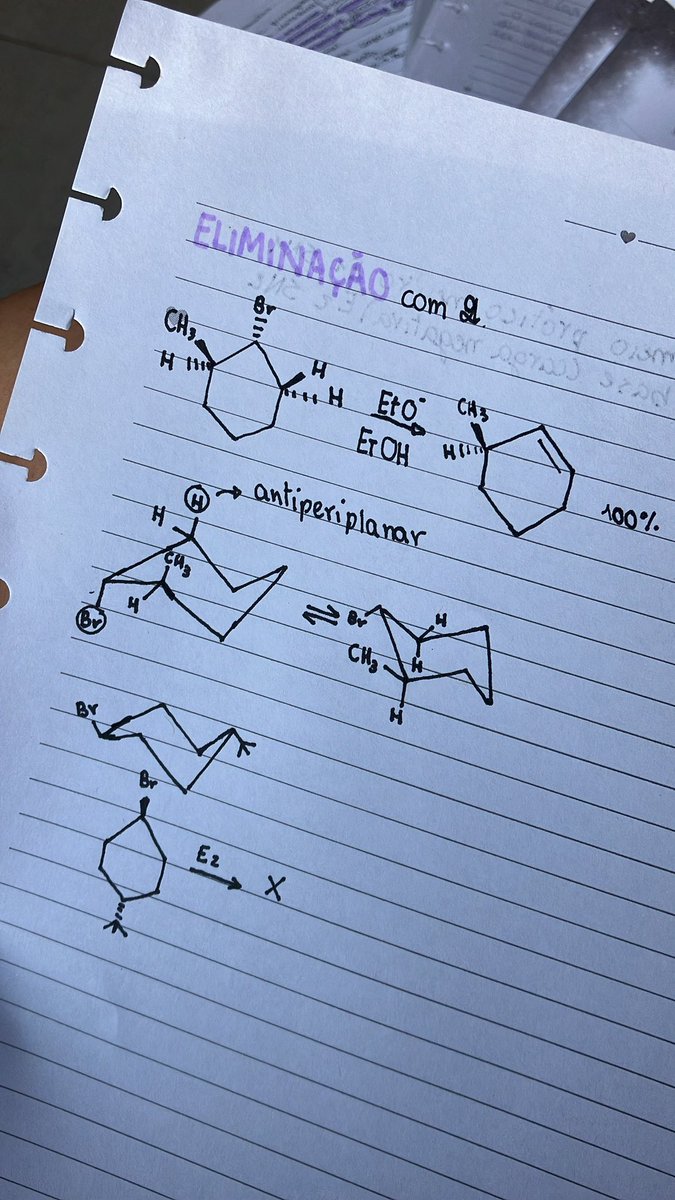 ELIMINAÇÃO com 2.
Br
CH₃
H
H
H
EtO⁻
EtOH
CH₃
H
100%
H → antiperiplanar
H
CH₃
H
Br
⇌
Br
H
CH₃
H
H
Br
Br
E₂
X